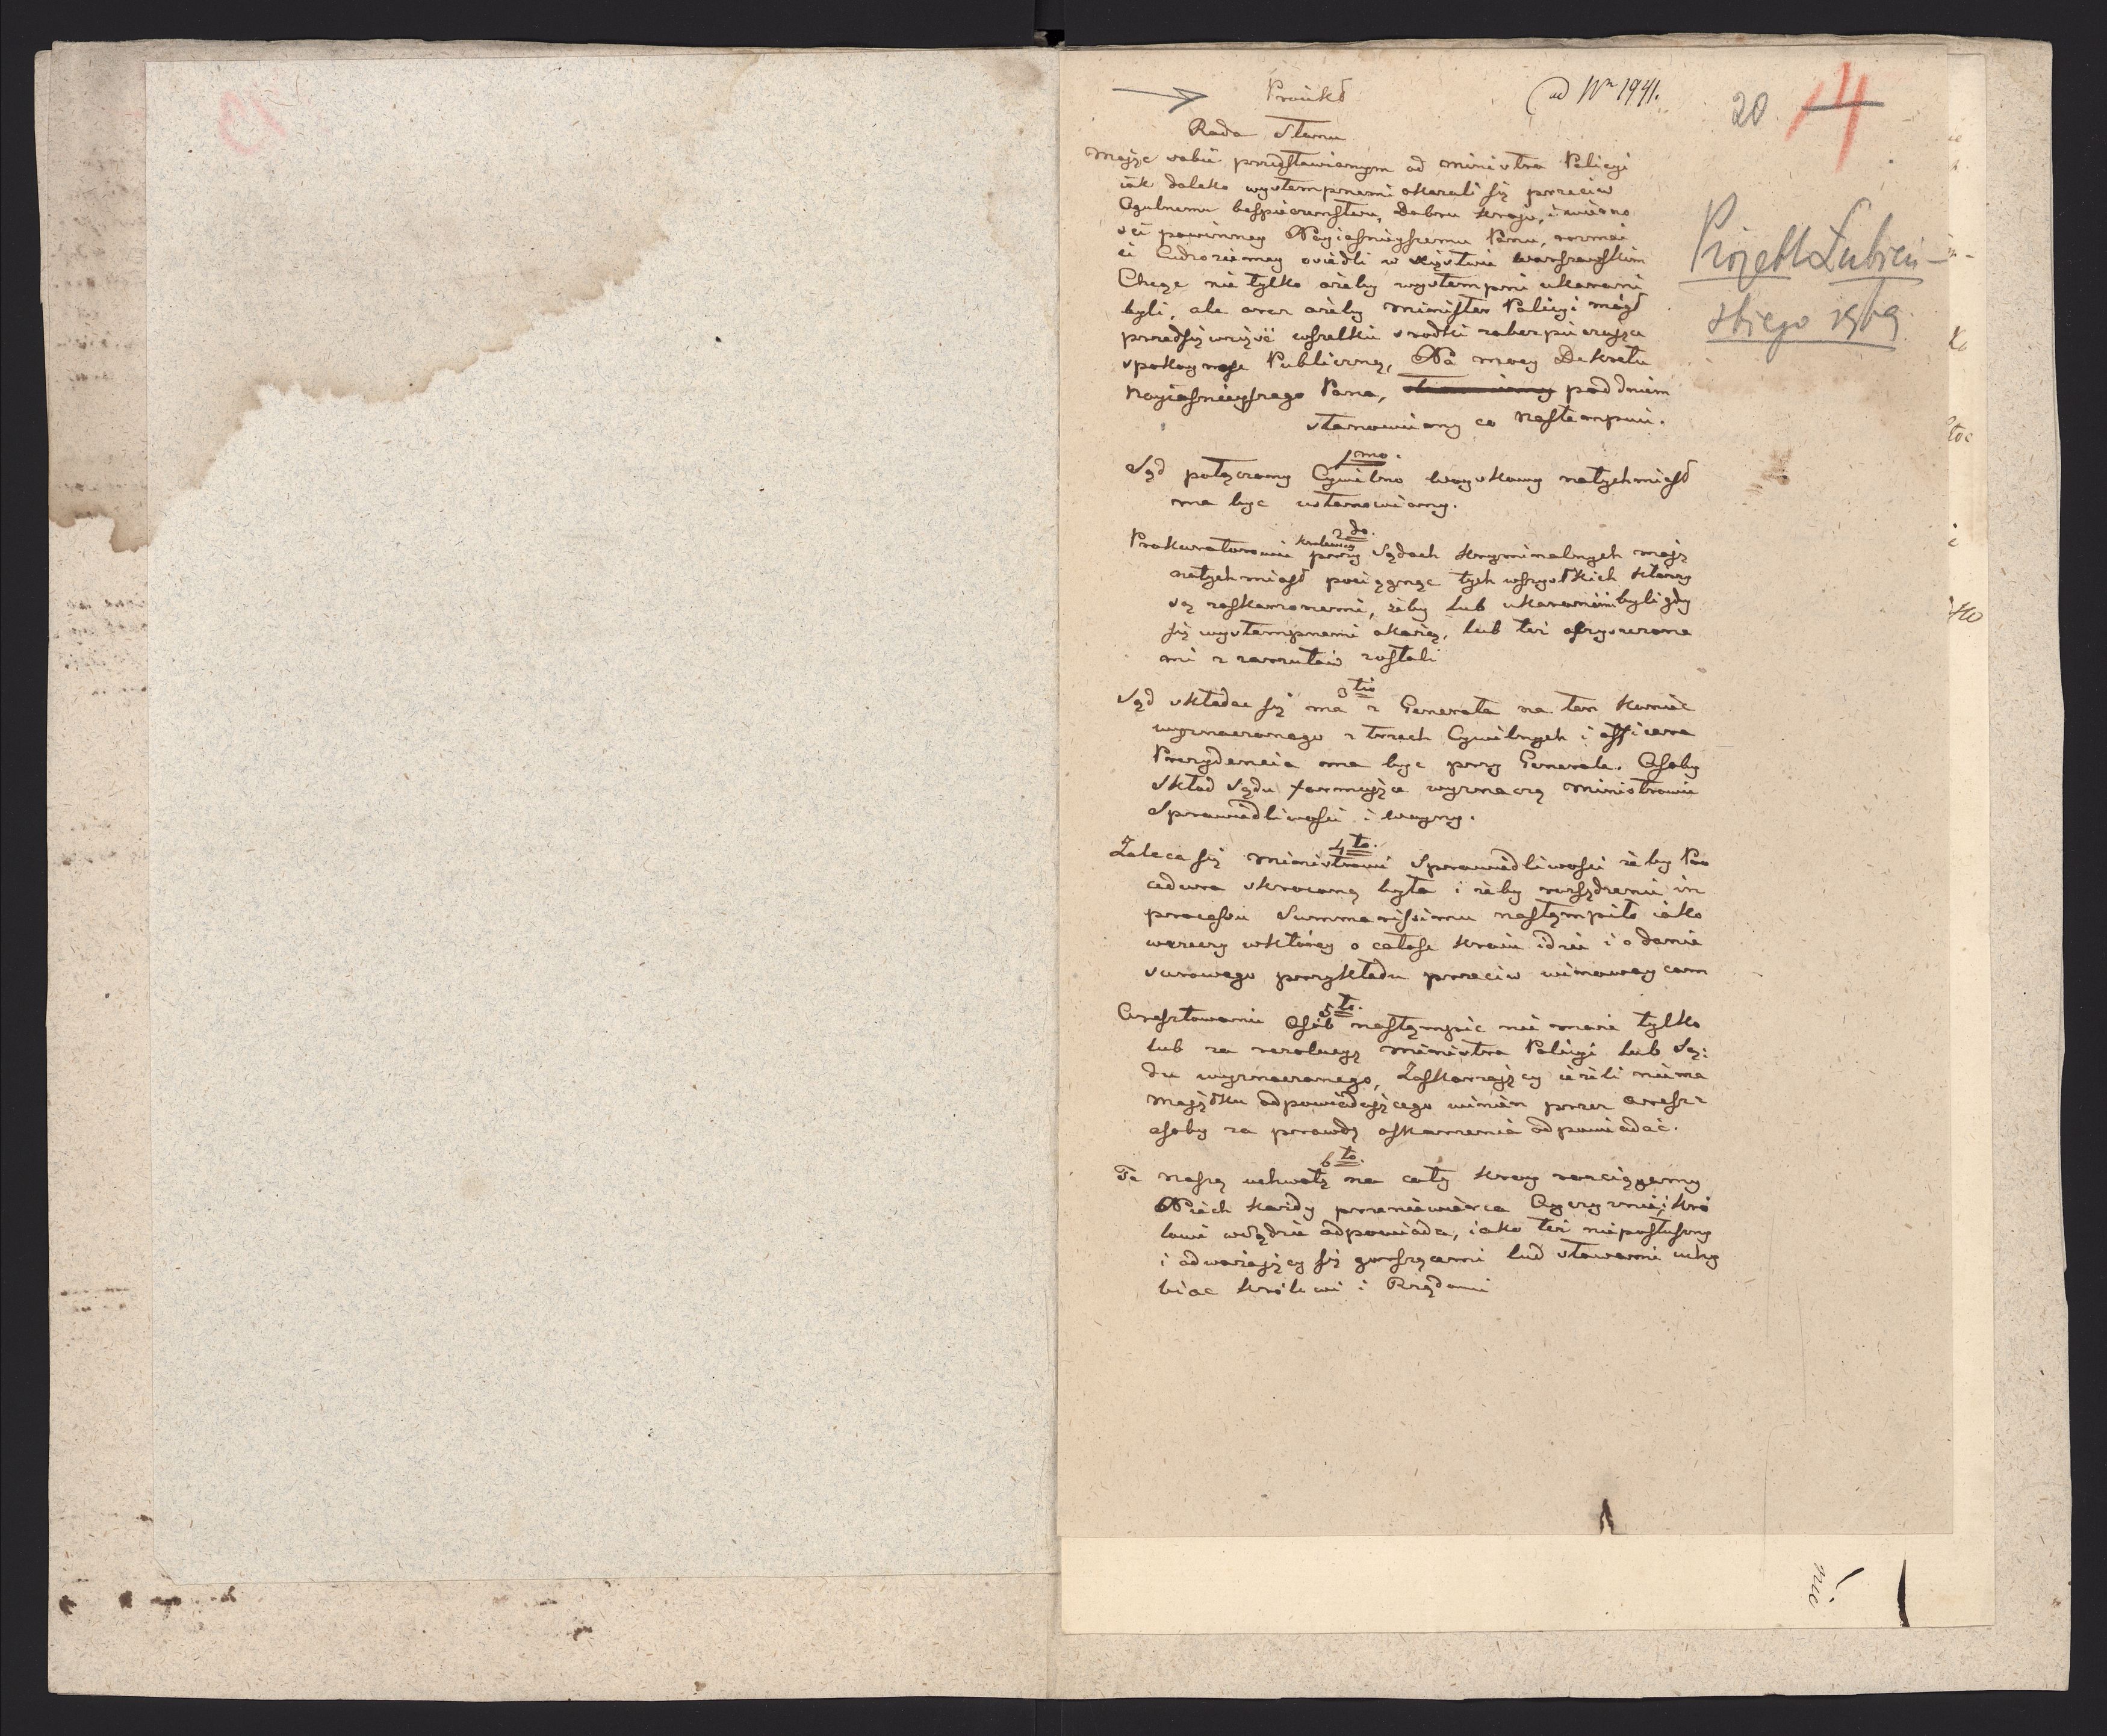 Proiekt
ad Nr 1941.
20 14
Rada Stanu
Maiąc sobie przedstawionym od Ministra Policyi
iak daleko wystempnemi okazali się przeciw
Ogulnemu bespieczenstwu, Dobru kraju, i wierno
sci powinney Nayiasnieyszemu Panu, rozmai
ci Cudzoziemcy osiedli w Xięstwie Warszawskim
Chcąc nie tylko ażeby wystempni ukarani
byli, ale oraz ażeby Minister Policyi mógł
przedsięwziąść wszelkie srodki zabezpieczaiące
spokoynosc Publiczną, Na mocy Dekretu
Nayiasnieyszego Pana, pod dniem
stanowiemy co nastempuie.
1mo.
Sąd połączony Cywilno woyskowy natychmiast
ma byc ustanowiony.
2do.
Prokuratorowie krolewscy przy Sądach kryminalnych maią
natychmiast pociągnąc tych wszystkich ktorzy
są zaskarzonemi, żeby lub ukaranimi byli gdy
się wystempnemi okażą, lub też oczyszczone
mi z zarzutów zostali
3tio
Sąd składac się ma z Generała na ten koniec
wyznaczonego z trzech Cywilnych i officera
Prezydencia ma byc przy Generale. Osoby
skład Sądu formuiące wyznaczą Ministrowie
Sprawiedliwosci i woyny.
4to.
Zaleca się Ministrowi Sprawiedliwosci żeby Pro
cedura skrocona była i żeby rozsądzenie in
processu Summarissimo nastąmpiło iako
wrzeczy wktórey o całosc kraiu idzie i o danie
surowego przykładu przeciw winowaycom
5to.
Aresztowanie Osób nastąmpic nie może tylko
lub za rezolucyą Ministra Policyi lub Są:
du wyznaczonego, Zaskarzaiący ieżeli niema
maiątku odpowiadaiącego winien przez areszt
osoby za prawdę oskarzenia odpowiadać.
6to.
Te naszą uchwałę na cały kray rosciągamy
Niech każdy przeniewierca Oyczyznie i Kró
lowi wSądzie odpowiada, iako też nieposłuszny
i odważaiący się gorszącemi lud słowami uchy
biac królowi i Rządowi
Projekt Łubień-
skiego 1809
nie